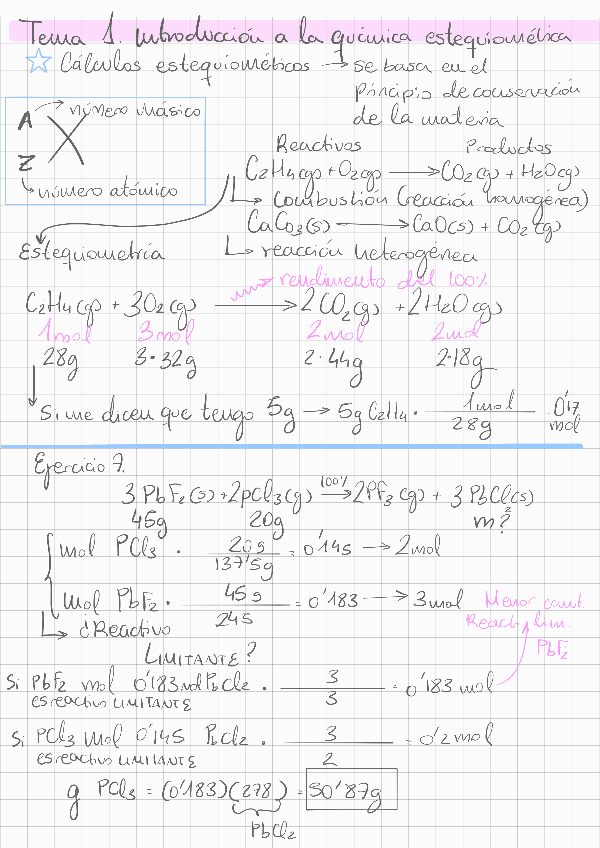 Tema 1. Introducción a la química estequiométrica
☆ Cálculos estequiométicos → se basa en el
principio de conservación
de la materia
A → número másico
Z
↳ número atómico
Reactivos Productos
C2H4(g) + O2(g) → CO2(g) + H2O(g)
↳ combustión (reacción homogénea)
CaCO3(s) → CaO(s) + CO2(g)
↳ reacción heterogénea
Estequiometría
→ rendimento del 100%
C2H4(g) + 3O2(g) → 2CO2(g) + 2H2O(g)
1mol 3mol 2mol 2mol
28g 3·32g 2·44g 2·18g
Si me dicen que tengo 5g → 5g C2H4 · 1mol / 28g 0'17 mol
Ejercicio 7.
3 PbF2(s) + 2PCl3(g) 100% → 2PF3(g) + 3 PbCl2(s)
45g 20g m?
mol PCl3 · 20g / 137'5g = 0'145 → 2mol
mol PbF2 · 45g / 245 = 0'183 → 3mol
Menor cant.
React. lim.
PbF2
↳ ¿Reactivo
LIMITANTE?
Si PbF2 mol 0'183 mol PbCl2 · 3 / 3 = 0'183 mol
es reactivo LIMITANTE
Si PCl3 mol 0'145 PbCl2 · 3 / 2 = 0'2 mol
es reactivo LIMITANTE
g PCl3 = (0'183)(278) = 50'87g
PbCl2